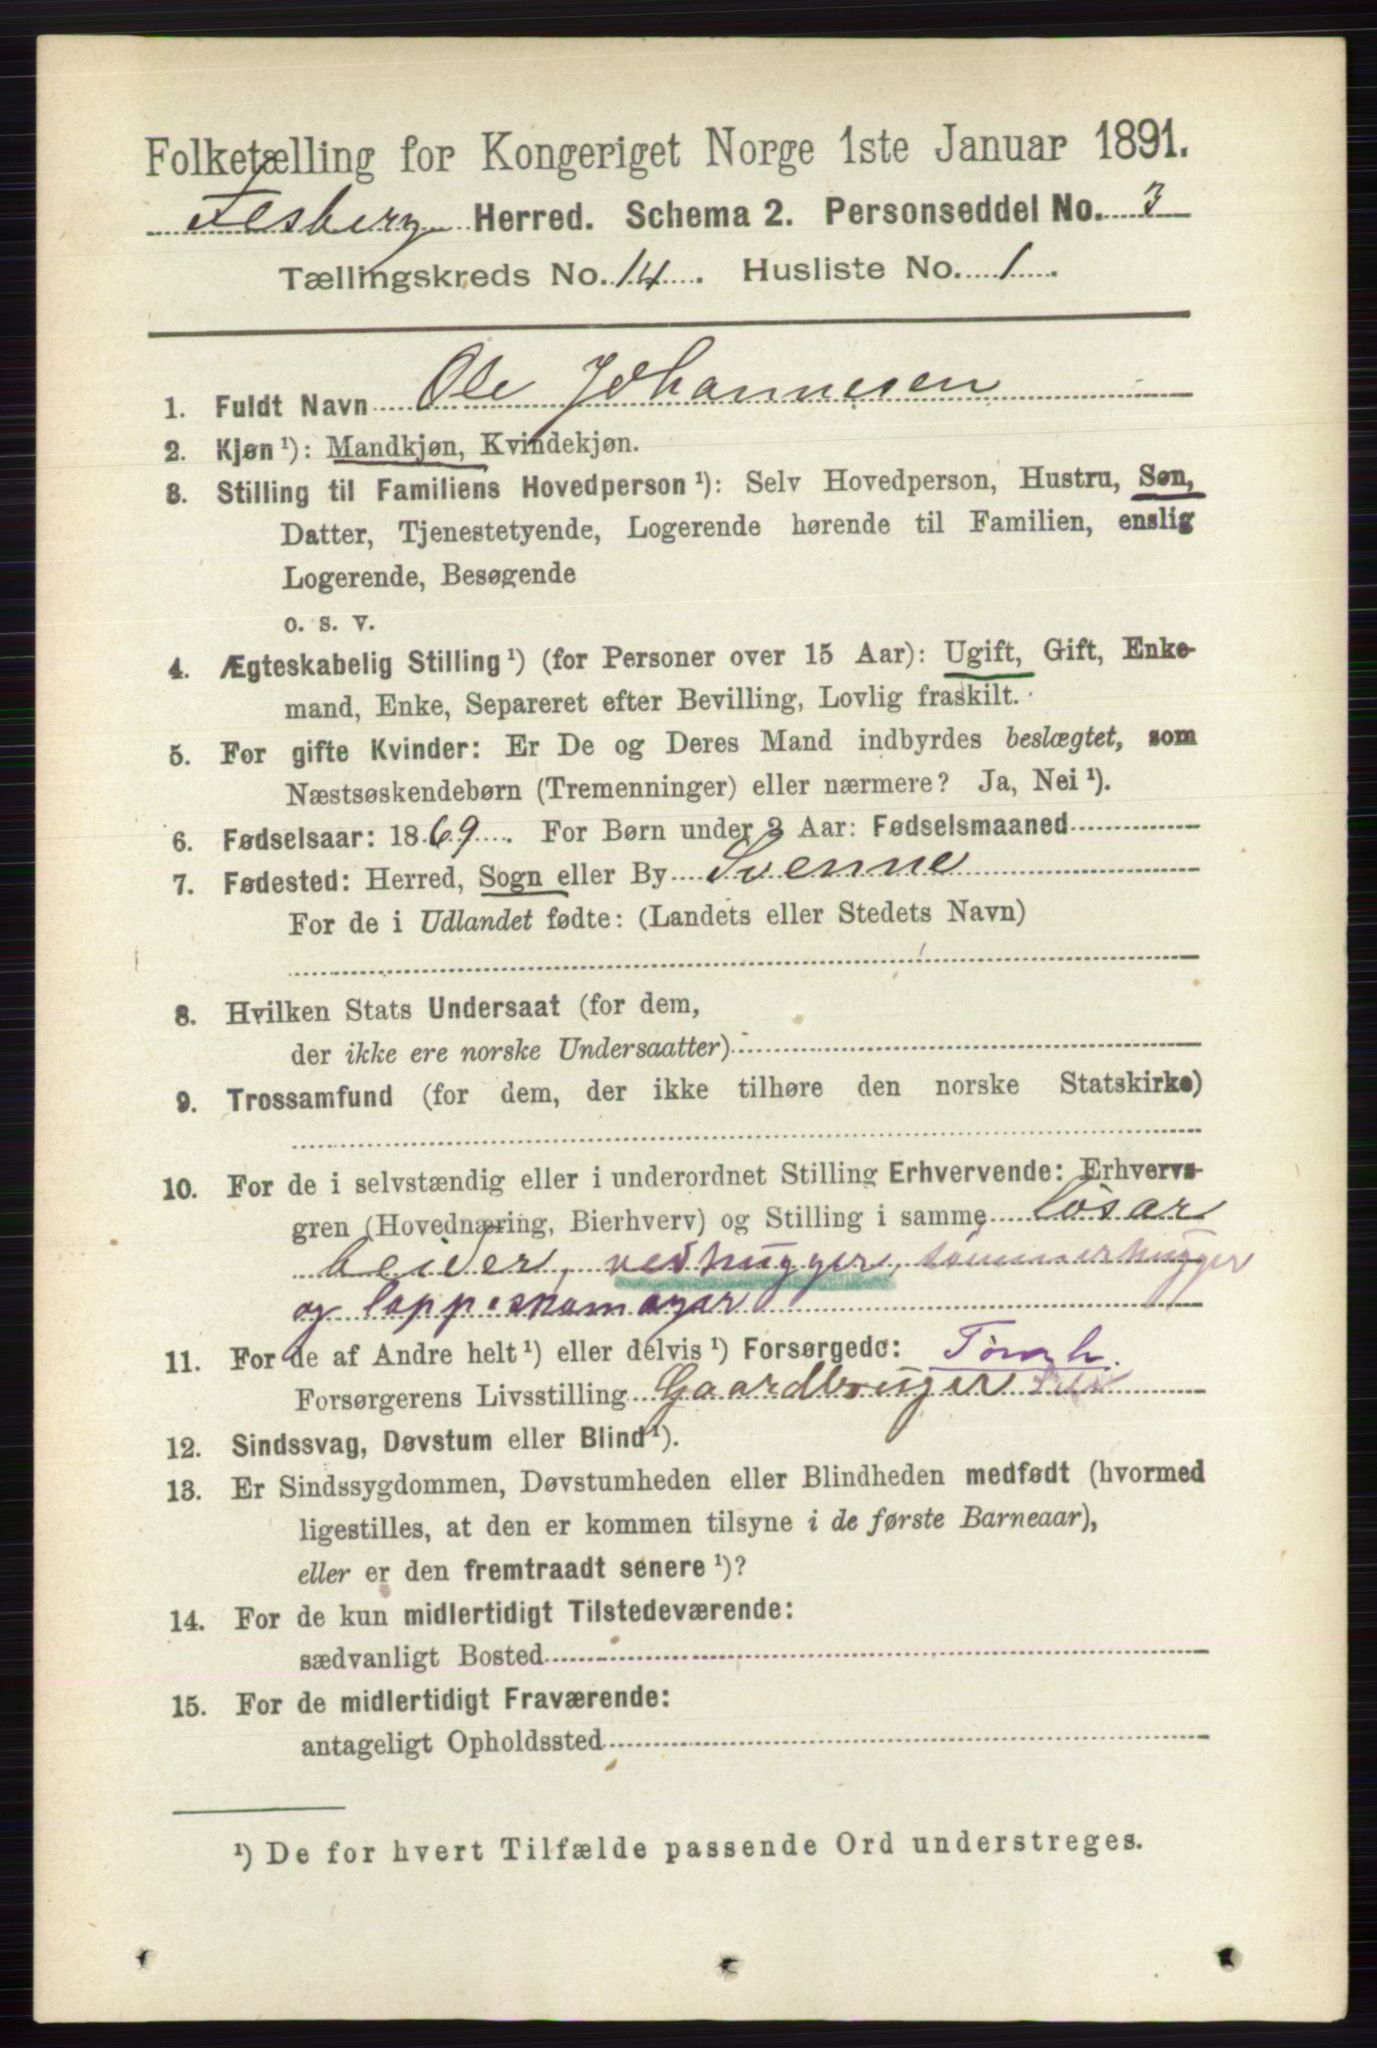 Folketælling for Kongeriget Norge 1ste Januar 1891.
Flesberg Herred. Schema 2. Personseddel No. 3
Tællingskreds No. 14. Husliste No. 1.
1. Fuldt Navn Ole Johannesen
2. Kjøn ¹): Mandkjøn, Kvindekjøn.
3. Stilling til Familiens Hovedperson ¹): Selv Hovedperson, Hustru, Søn,
Datter, Tjenestetyende, Logerende hørende til Familien, enslig
Logerende, Besøgende
o. s. v.
4. Ægteskabelig Stilling ¹) (for Personer over 15 Aar): Ugift, Gift, Enke-
mand, Enke, Separeret efter Bevilling, Lovlig fraskilt.
5. For gifte Kvinder: Er De og Deres Mand indbyrdes beslægtet, som
Næstsøskendebørn (Tremenninger) eller nærmere? Ja, Nei ¹).
6. Fødselsaar: 1869. For Børn under 2 Aar: Fødselsmaaned
7. Fødested: Herred, Sogn eller By Svenne
For de i Udlandet fødte: (Landets eller Stedets Navn)
8. Hvilken Stats Undersaat (for dem,
der ikke ere norske Undersaatter)
9. Trossamfund (for dem, der ikke tilhøre den norske Statskirke)
10. For de i selvstændig eller i underordnet Stilling Erhvervende: Erhvervs-
gren (Hovednæring, Bierhverv) og Stilling i samme løsar
beider, vedhugger, tømmerhugger
og lappeskomager
11. For de af Andre helt ¹) eller delvis ¹) Forsørgede:
Forsørgerens Livsstilling Gaardbruger
12. Sindssvag, Døvstum eller Blind ¹).
13. Er Sindssygdommen, Døvstumheden eller Blindheden medfødt (hvormed
ligestilles, at den er kommen tilsyne i de første Barneaar),
eller er den fremtraadt senere ¹)?
14. For de kun midlertidigt Tilstedeværende:
sædvanligt Bosted
15. For de midlertidigt Fraværende:
antageligt Opholdssted
¹) De for hvert Tilfælde passende Ord understreges.